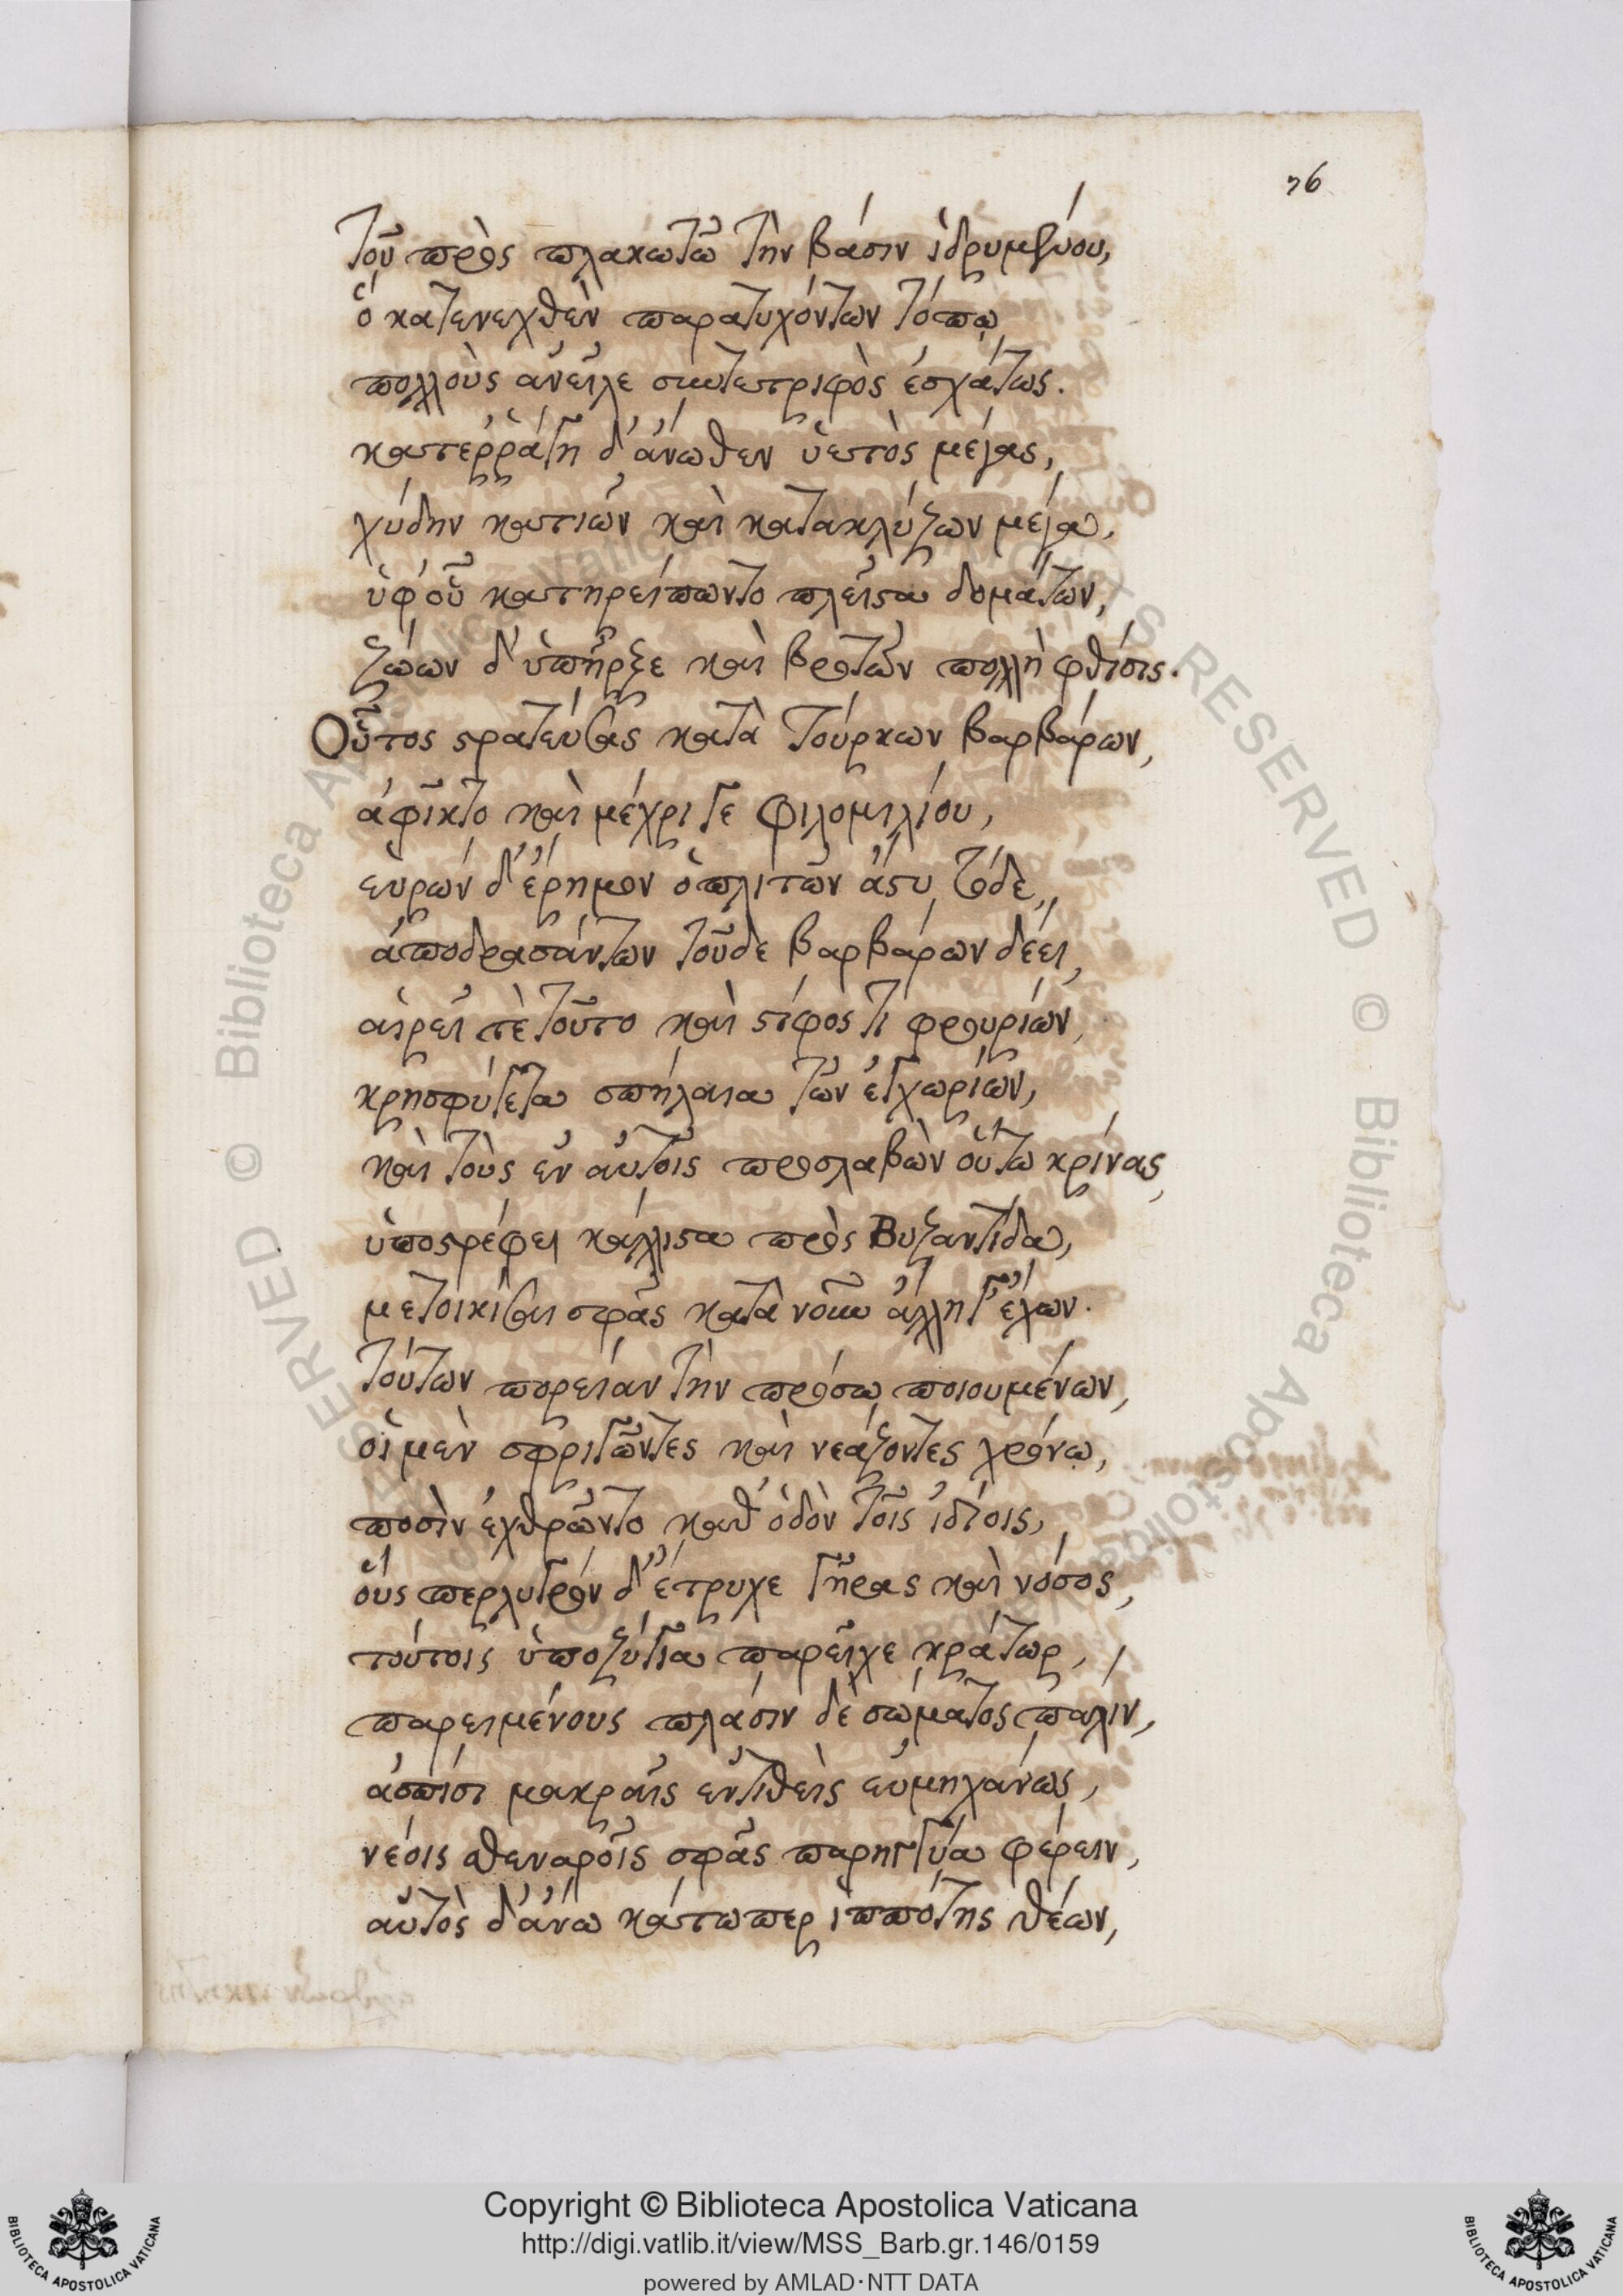 76
τοῦ πρὸς πλακωτῶ τὴν βάσιν ἱδρυμένου,
ὃ κατενεχθὲν παρατυχόντων τόπῳ
πολλοὺς ἀνεῖλε συντετριφὸς ἐσχάτως.
κατερράγη δ' ἄνωθεν ὑετὸς μέγας,
χύδην κατιὼν καὶ κατακλύζων μέγα,
ὑφ' οὗ κατηρείπωντο πλεῖστα δομάτων,
ζώων δ' ὑπῆρξε καὶ βροτῶν πολλὴ φθίσις.
Οὗτος στρατεύσας κατὰ Τούρκων βαρβάρων,
ἀφῖκτο καὶ μέχρι γε φιλομιλίου,
εὑρών δ' ἔρημον ὁπλιτῶν ἄστυ τόδε,
ἀποδρασάντων τοῦδε βαρβάρων δέει,
αἱρεῖ τὲ τοῦτο καὶ στίφος τι φρουρίων,
κρησφύγετα σπήλαια τῶν ἐγχωρίων,
καὶ τοὺς ἐν αὐτοῖς προσλαβὼν οὕτω κρίνας,
ὑποστρέφει κάλλιστα πρὸς Βυζαντίδα,
μετοικίσαι σφᾶς κατὰ νοῦν ἄλλη γ' ἔχων.
τούτων πορείαν τὴν πρόσω ποιουμένων,
οἱ μὲν σφριγῶντες καὶ νεάζοντες χρόνῳ,
ποσὶν ἐχρῶντο καθ' ὁδὸν τοῖς ἰδίοις,
οὓς δ' ἔτρυχε γῆρας καὶ νόσος,
τούτοις ὑποζύγια παρεῖχε κράτωρ,
παρειμένους πλάσιν δὲ σώματος πάλιν,
ἀσπίσι μακραῖς ἐντιθεὶς εὐμηχάνως,
νέοις σθεναροῖς σφᾶς παρηγγύα φέρειν,
αὐτὸς δ' ἄνω κάτωπερ ἱππότης θέων,
© Biblioteca Apostolica Vaticana
Copyright © Biblioteca Apostolica Vaticana
http://digi.vatlib.it/view/MSS_Barb.gr.146/0159
powered by AMLAD·NTT DATA
BIBLIOTECA APOSTOLICA VATICANA
BIBLIOTECA APOSTOLICA VATICANA